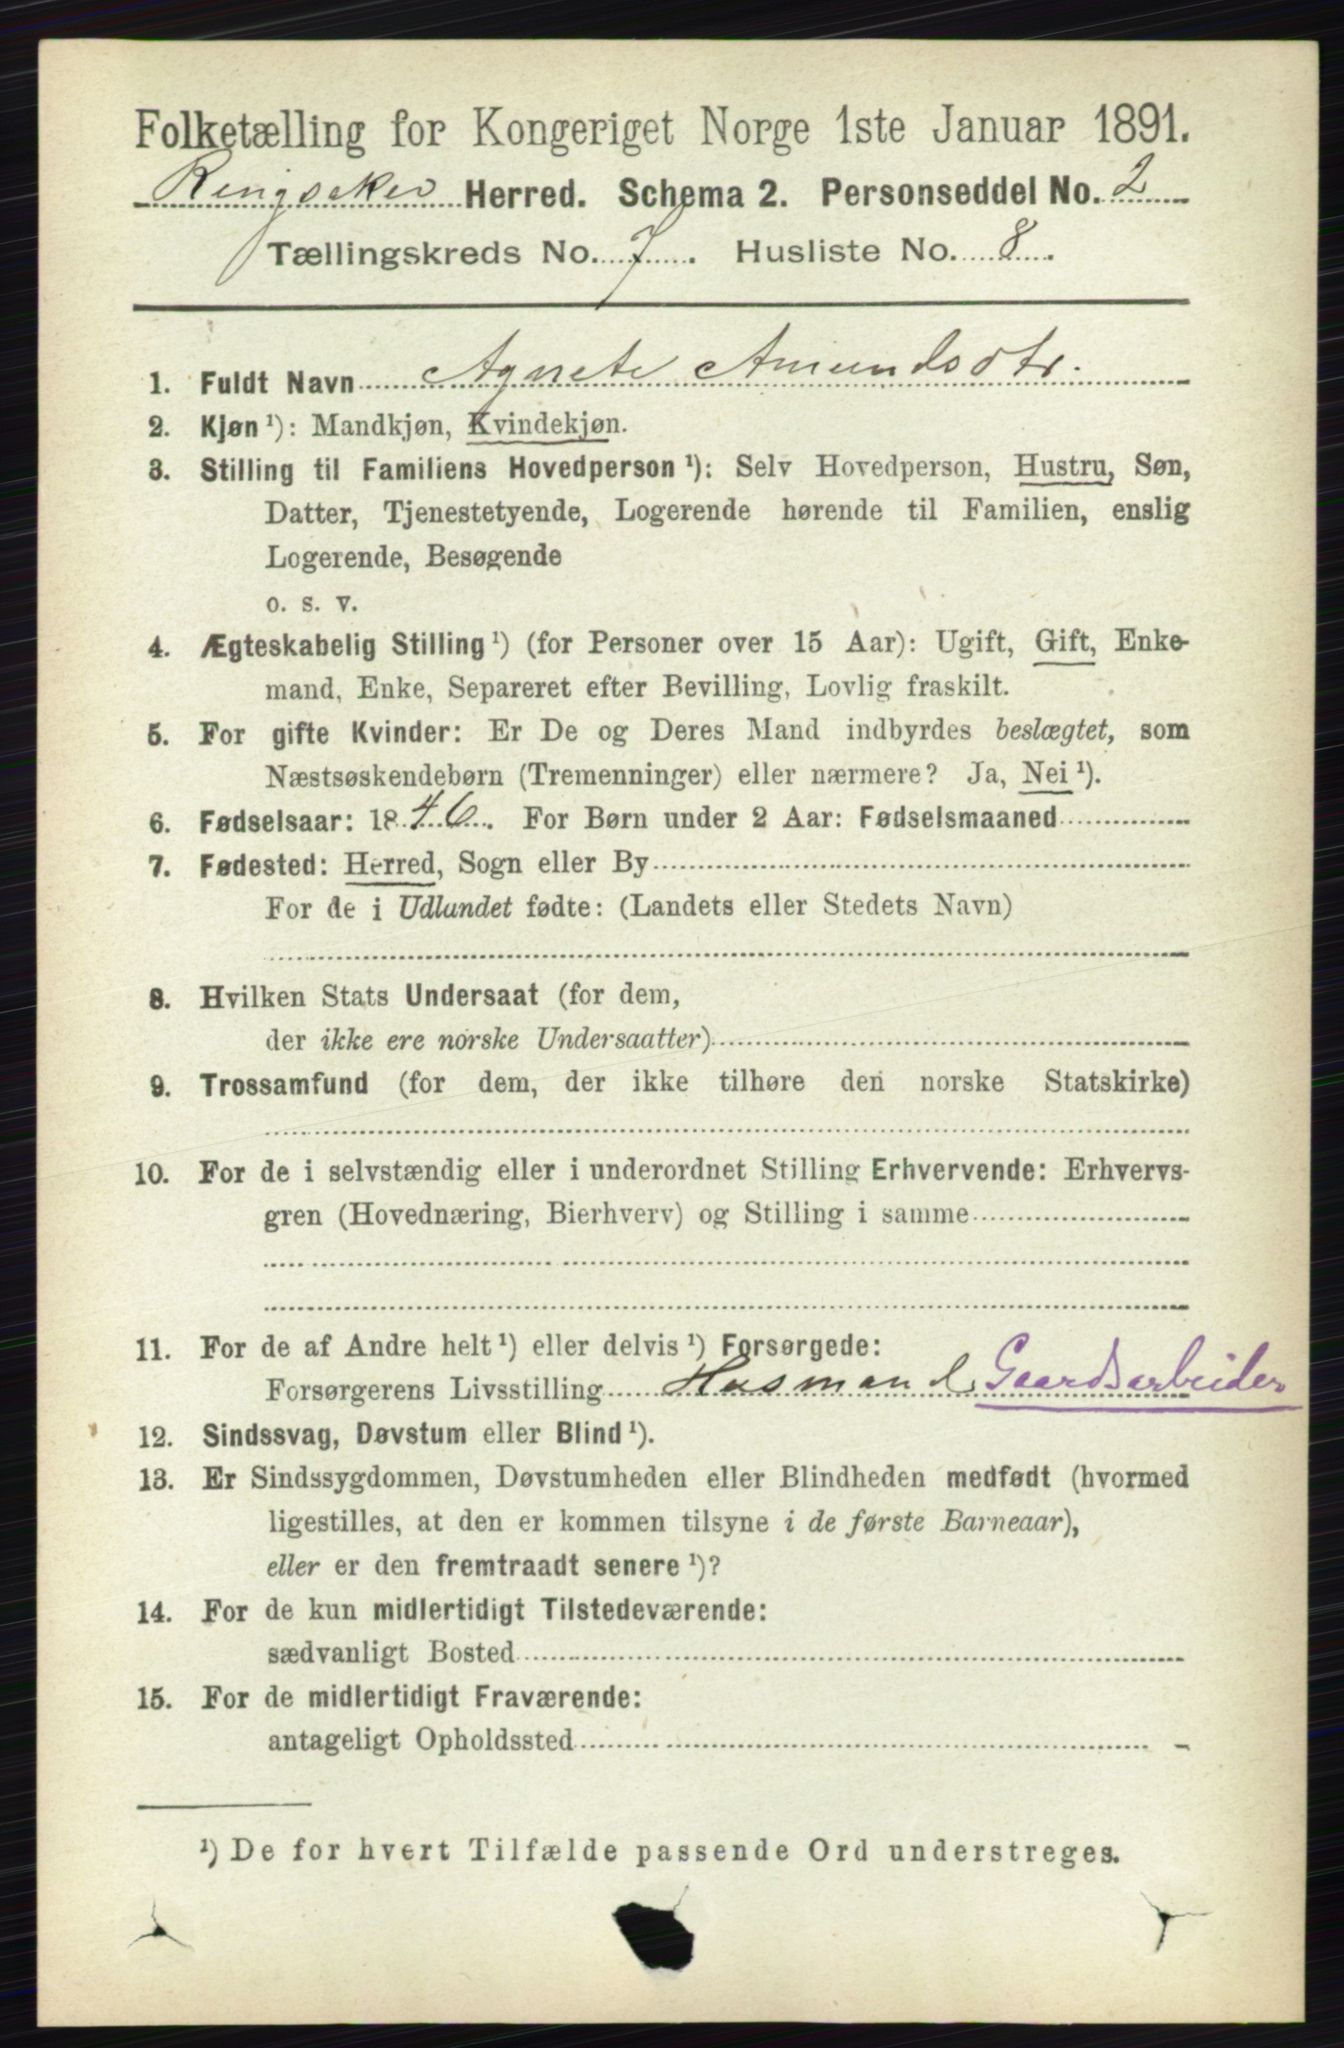 Folketælling for Kongeriget Norge 1ste Januar 1891.
Ringsaker Herred. Schema 2. Personseddel No. 2
Tællingskreds No. 7. Husliste No. 8.
1. Fuldt Navn Agnete Amundsdtr.
2. Kjøn ¹): Mandkjøn, Kvindekjøn.
3. Stilling til Familiens Hovedperson ¹): Selv Hovedperson, Hustru, Søn,
Datter, Tjenestetyende, Logerende hørende til Familien, enslig
Logerende, Besøgende
o. s. v.
4. Ægteskabelig Stilling ¹) (for Personer over 15 Aar): Ugift, Gift, Enke-
mand, Enke, Separeret efter Bevilling, Lovlig fraskilt.
5. For gifte Kvinder: Er De og Deres Mand indbyrdes beslægtet, som
Næstsøskendebørn (Tremenninger) eller nærmere? Ja, Nei ¹).
6. Fødselsaar: 1846. For Børn under 2 Aar: Fødselsmaaned
7. Fødested: Herred, Sogn eller By
For de i Udlandet fødte: (Landets eller Stedets Navn)
8. Hvilken Stats Undersaat (for dem,
der ikke ere norske Undersaatter)
9. Trossamfund (for dem, der ikke tilhøre den norske Statskirke)
10. For de i selvstændig eller i underordnet Stilling Erhvervende: Erhvervs-
gren (Hovednæring, Bierhverv) og Stilling i samme
11. For de af Andre helt ¹) eller delvis ¹) Forsørgede:
Forsørgerens Livsstilling Husmand Gaardsarbeider
12. Sindssvag, Døvstum eller Blind ¹).
13. Er Sindssygdommen, Døvstumheden eller Blindheden medfødt (hvormed
ligestilles, at den er kommen tilsyne i de første Barneaar),
eller er den fremtraadt senere ¹)?
14. For de kun midlertidigt Tilstedeværende:
sædvanligt Bosted
15. For de midlertidigt Fraværende:
antageligt Opholdssted
¹) De for hvert Tilfælde passende Ord understreges.